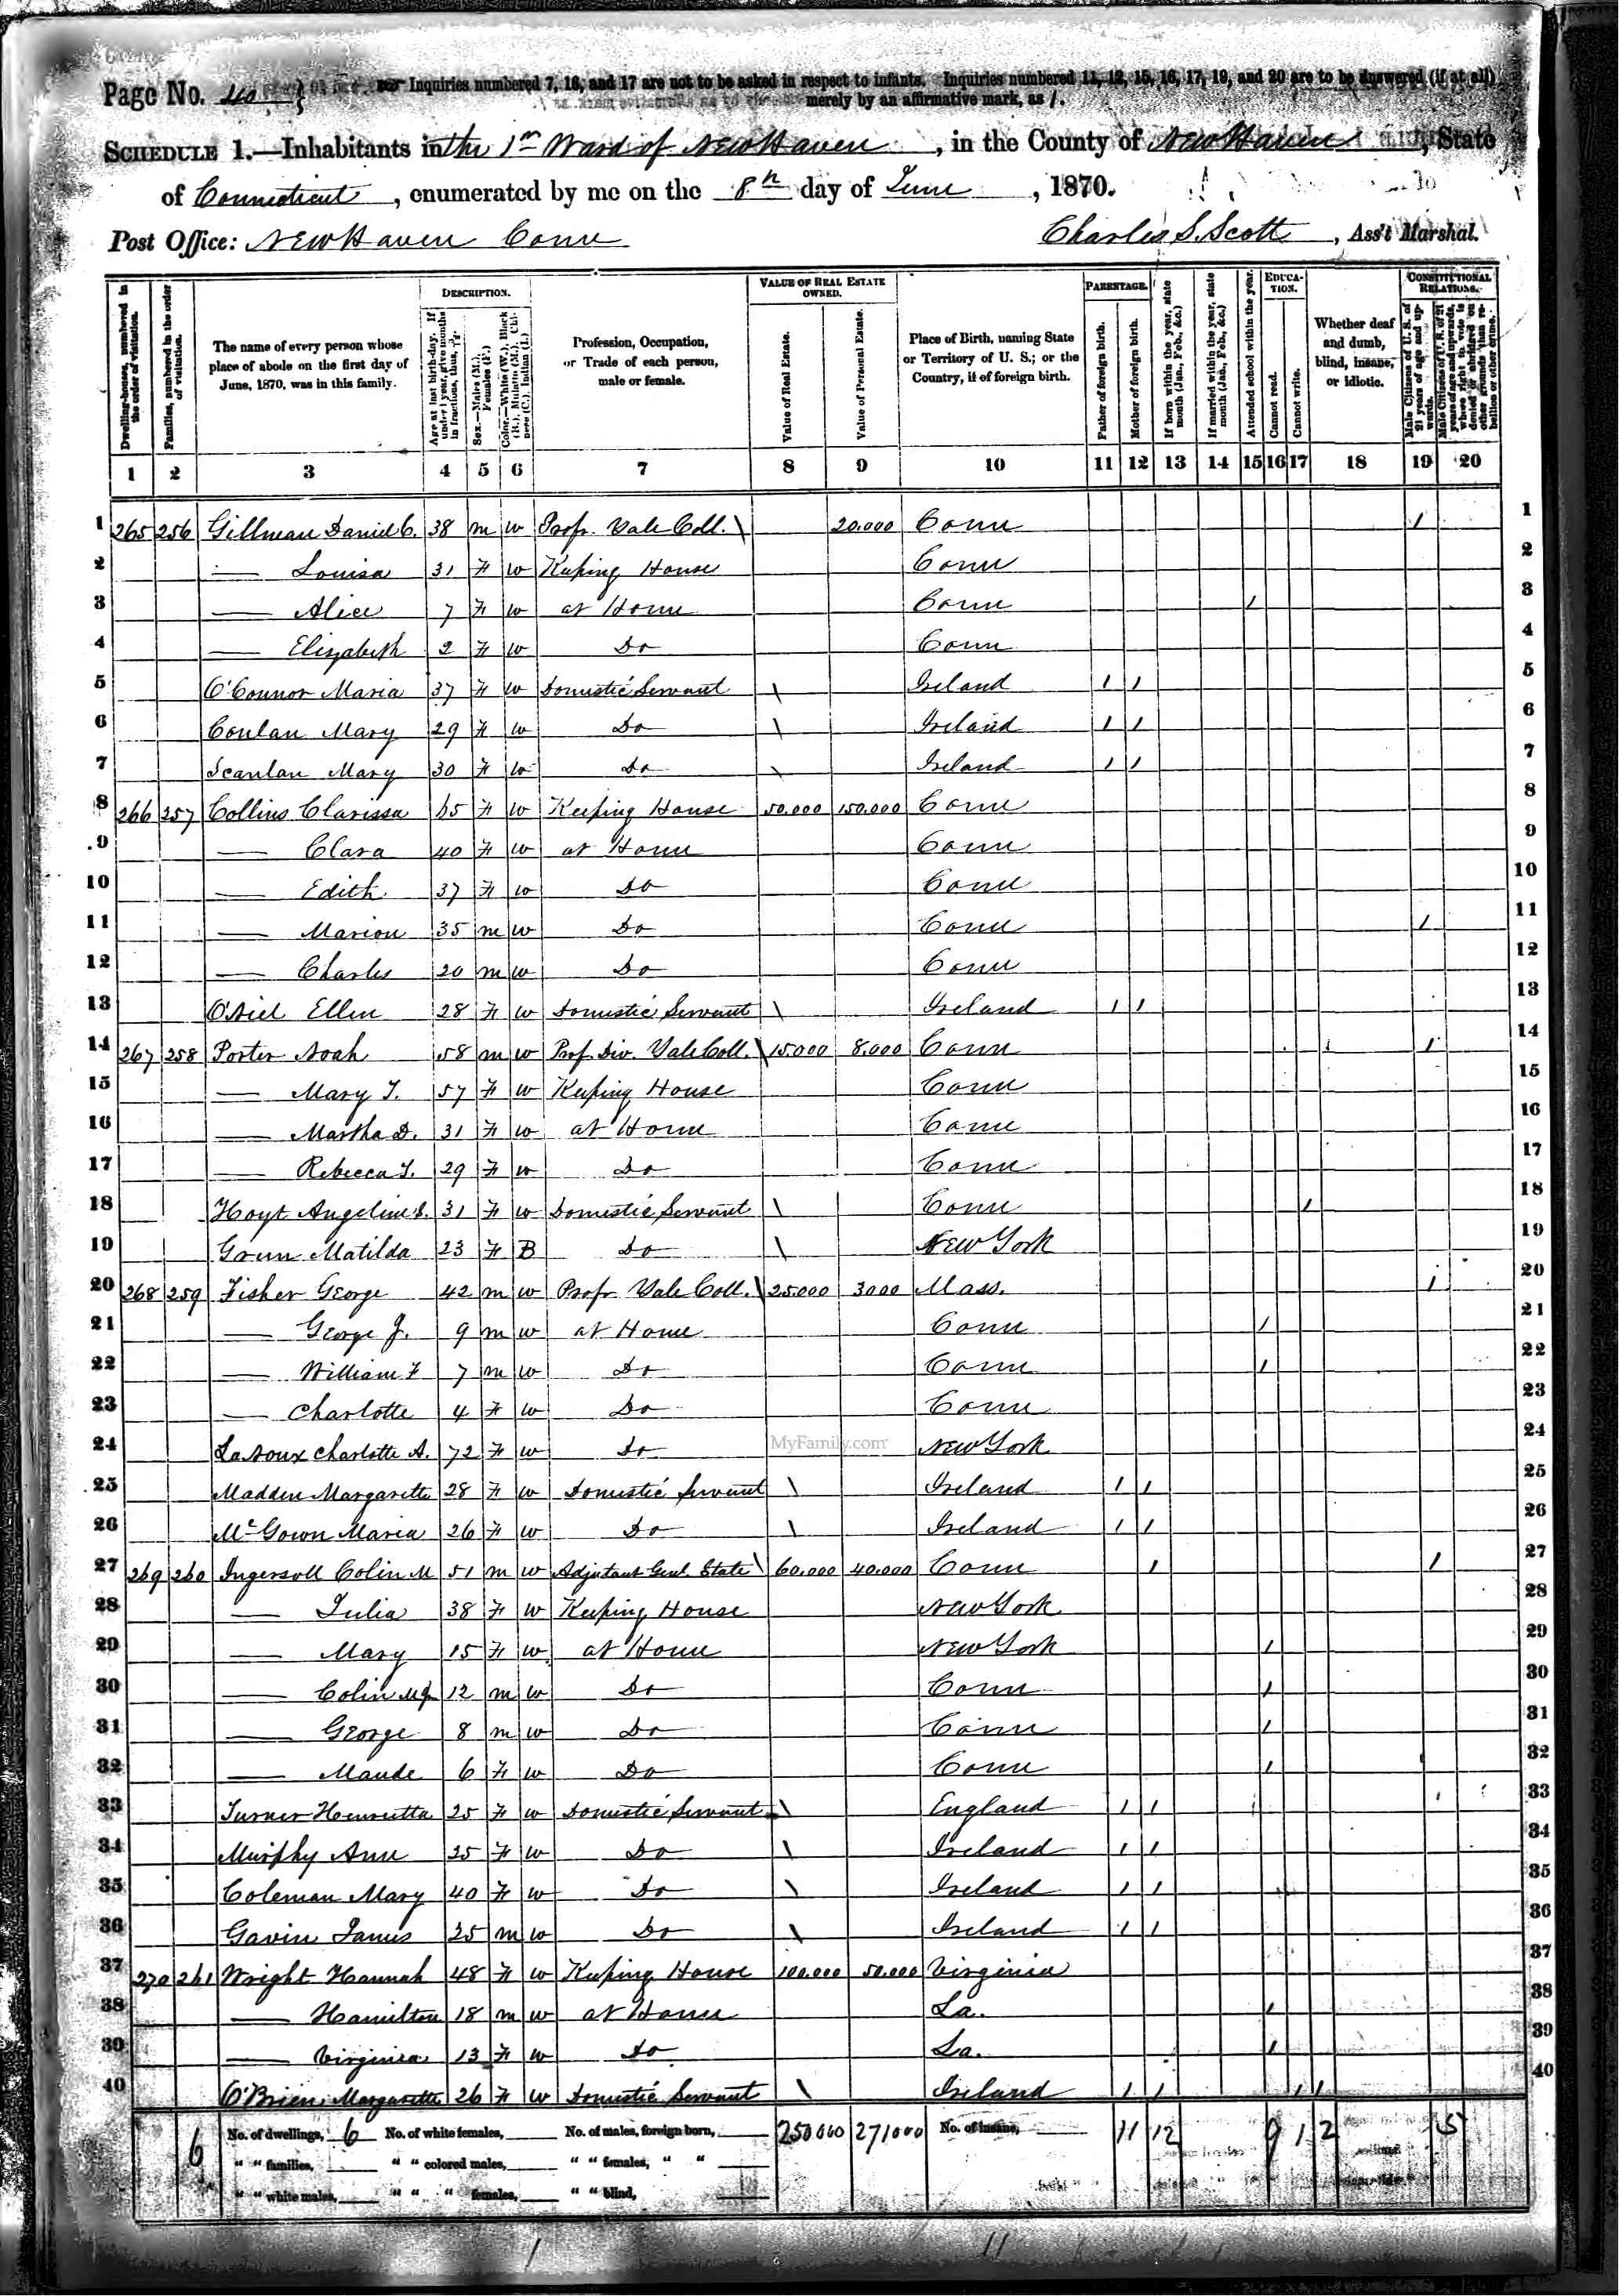 Page No. 40 Inquiries numbered 7, 16, and 17 are not to be asked in respect to infants. Inquiries numbered 11, 12, 15, 16, 17, 19, and 20 are to be answered (if at all)
merely by an affirmative mark, as /.
SCHEDULE 1.—Inhabitants in the 1st Ward of New Haven, in the County of New Haven, State
of Connecticut, enumerated by me on the 8th day of June, 1870.
Post Office: New Haven Conn Charles S. Scott, Ass't Marshal.
Dwelling-houses, numbered in the order of visitation.
Families, numbered in the order of visitation.
The name of every person whose place of abode on the first day of June, 1870, was in this family.
DESCRIPTION.
Age at last birth-day. If under 1 year, give months in fractions, thus,
Sex.—Males (M.), Females (F.)
Color.—White (W.), Black (B.), Mulatto (M.), Chinese (C.), Indian (I.)
Profession, Occupation, or Trade of each person, male or female.
VALUE OF REAL ESTATE OWNED.
Value of Real Estate.
Value of Personal Estate.
Place of Birth, naming State or Territory of U. S.; or the Country, if of foreign birth.
PARENTAGE.
Father of foreign birth.
Mother of foreign birth.
If born within the year, state month (Jan., Feb., &c.)
If married within the year, state month (Jan., Feb., &c.)
Attended school within the year.
EDUCATION.
Cannot read.
Cannot write.
Whether deaf and dumb, blind, insane, or idiotic.
CONSTITUTIONAL RELATIONS.
Male Citizens of U. S. of 21 years of age and upwards.
Male Citizens of U. S. of 21 years of age and upwards, whose right to vote is denied or abridged on other grounds than rebellion or other crime.
1 2 3 4 5 6 7 8 9 10 11 12 13 14 15 16 17 18 19 20
1 265 256 Gillman Daniel C. 38 m w Prof. Yale Coll. \ 20.000 Conn / 1
2 — Louisa 31 F w Keeping House Conn 2
3 — Alice 7 F w at Home Conn / 3
4 — Elizabeth 2 F w Do Conn 4
5 O'Connor Maria 37 F w Domestic Servant \ Ireland / / 5
6 Conlan Mary 29 F w Do \ Ireland / / 6
7 Scanlan Mary 30 F w Do \ Ireland / / 7
8 266 257 Collins Clarissa 65 F w Keeping House 50.000 150.000 Conn 8
9 — Clara 40 F w at Home Conn 9
10 — Edith 37 F w Do Conn 10
11 — Marion 35 m w Do Conn / 11
12 — Charles 20 m w Do Conn 12
13 O'Niel Ellen 28 F w Domestic Servant \ Ireland / / 13
14 267 258 Porter Noah 58 m w Prof Div. Yale Coll. \ 15.000 8.000 Conn / 14
15 — Mary T. 57 F w Keeping House Conn 15
16 — Martha D. 31 F w at Home Conn 16
17 — Rebecca T. 29 F w Do Conn 17
18 Hoyt Angeline S. 31 F w Domestic Servant \ Conn / 18
19 Matilda 23 F B Do \ New York 19
20 268 259 Fisher George 42 m w Prof. Yale Coll. \ 25.000 3000 Mass. / 20
21 — George J. 9 m w at Home Conn / 21
22 — William F 7 m w Do Conn / 22
23 — Charlotte 4 F w Do Conn 23
24 Charlotte A. 72 F w Do New York 24
25 Madden Margarette 28 F w Domestic Servant \ Ireland / / 25
26 McGown Maria 26 F w Do \ Ireland / / 26
27 269 260 Ingersoll Colin M 51 m w Adjutant Genl. State \ 60.000 40.000 Conn / / 27
28 — Julia 38 F w Keeping House New York 28
29 — Mary 15 F w at Home New York / 29
30 — Colin M J. 12 m w Do Conn / 30
31 — George 8 m w Do Conn / 31
32 — Maude 6 F w Do Conn / 32
33 Turner Henrietta 25 F w Domestic Servant \ England / / 33
34 Murphy Ann 25 F w Do \ Ireland / / 34
35 Coleman Mary 40 F w Do \ Ireland / / 35
36 Gavin James 25 m w Do \ Ireland / / 36
37 270 261 Wright Hannah 48 F w Keeping House 100.000 50.000 Virginia 37
38 — Hamilton 18 m w at Home La. / 38
39 — Virginia 13 F w Do La. / 39
40 O'Brien Margarette 26 F w Domestic Servant \ Ireland / / / / 40
6 No. of dwellings, 6 No. of white females, No. of males, foreign born, 250000 271000 No. of insane, 11 12 9 1 2 5
" " families, " " colored males, " " females, " "
" " white males, " " " females, " " blind,
MyFamily.com